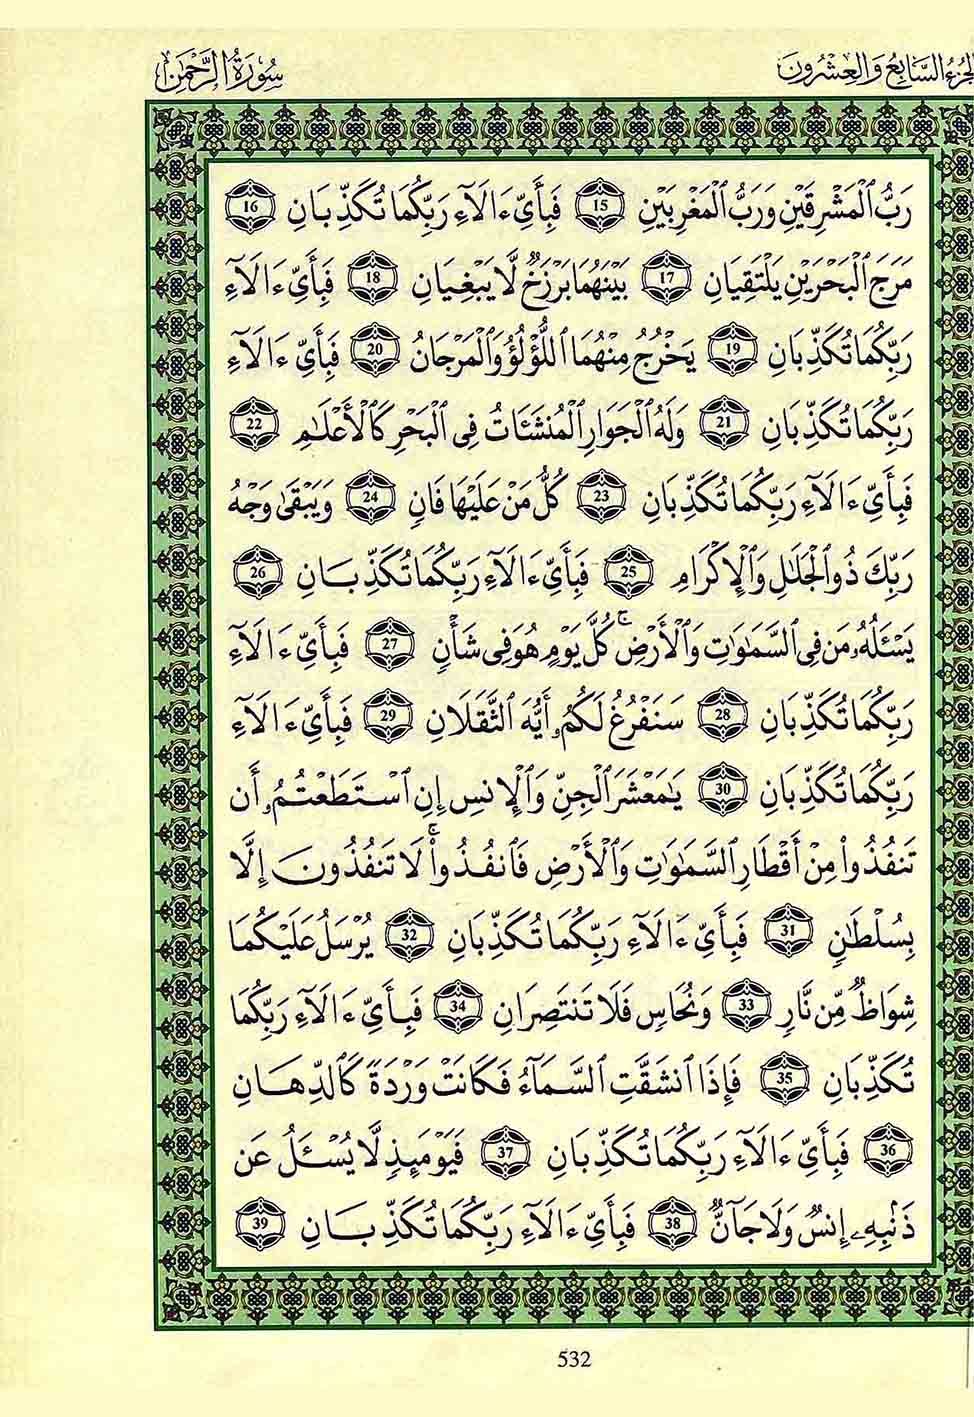 الجزء السابع والعشرون
سورة الرحمن
رَبُّ ٱلْمَشْرِقَيْنِ وَرَبُّ ٱلْمَغْرِبَيْنِ 15 فَبِأَيِّ ءَالَآءِ رَبِّكُمَا تُكَذِّبَانِ 16
مَرَجَ ٱلْبَحْرَيْنِ يَلْتَقِيَانِ 17 بَيْنَهُمَا بَرْزَخٌ لَّا يَبْغِيَانِ 18 فَبِأَيِّ ءَالَآءِ
رَبِّكُمَا تُكَذِّبَانِ 19 يَخْرُجُ مِنْهُمَا ٱللُّؤْلُؤُ وَٱلْمَرْجَانُ 20 فَبِأَيِّ ءَالَآءِ
رَبِّكُمَا تُكَذِّبَانِ 21 وَلَهُ ٱلْجَوَارِ ٱلْمُنشَـَٔاتُ فِى ٱلْبَحْرِ كَٱلْأَعْلَـٰمِ 22
فَبِأَيِّ ءَالَآءِ رَبِّكُمَا تُكَذِّبَانِ 23 كُلُّ مَنْ عَلَيْهَا فَانٍ 24 وَيَبْقَىٰ وَجْهُ
رَبِّكَ ذُو ٱلْجَلَـٰلِ وَٱلْإِكْرَامِ 25 فَبِأَيِّ ءَالَآءِ رَبِّكُمَا تُكَذِّبَانِ 26
يَسْـَٔلُهُۥ مَن فِى ٱلسَّمَـٰوَٰتِ وَٱلْأَرْضِ ۚ كُلَّ يَوْمٍ هُوَ فِى شَأْنٍ 27 فَبِأَيِّ ءَالَآءِ
رَبِّكُمَا تُكَذِّبَانِ 28 سَنَفْرُغُ لَكُمُۥٓ أَيُّهَ ٱلثَّقَلَانِ 29 فَبِأَيِّ ءَالَآءِ
رَبِّكُمَا تُكَذِّبَانِ 30 يَـٰمَعْشَرَ ٱلْجِنِّ وَٱلْإِنسِ إِنِ ٱسْتَطَعْتُمُۥٓ أَن
تَنفُذُوا۟ مِنْ أَقْطَارِ ٱلسَّمَـٰوَٰتِ وَٱلْأَرْضِ فَٱنفُذُوا۟ ۚ لَا تَنفُذُونَ إِلَّا
بِسُلْطَـٰنٍ 31 فَبِأَيِّ ءَالَآءِ رَبِّكُمَا تُكَذِّبَانِ 32 يُرْسَلُ عَلَيْكُمَا
شِوَاظٌ مِّن نَّارٍ 33 وَنُحَاسٍ فَلَا تَنتَصِرَانِ 34 فَبِأَيِّ ءَالَآءِ رَبِّكُمَا
تُكَذِّبَانِ 35 فَإِذَا ٱنشَقَّتِ ٱلسَّمَآءُ فَكَانَتْ وَرْدَةً كَٱلدِّهَانِ
36 فَبِأَيِّ ءَالَآءِ رَبِّكُمَا تُكَذِّبَانِ 37 فَيَوْمَئِذٍ لَّا يُسْـَٔلُ عَن
ذَنۢبِهِۦٓ إِنسٌ وَلَا جَآنٌّ 38 فَبِأَيِّ ءَالَآءِ رَبِّكُمَا تُكَذِّبَانِ 39
532